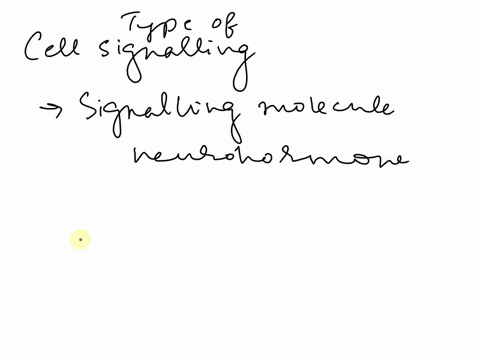 Type of
Cell signalling
→ Signalling molecule
neurohormone